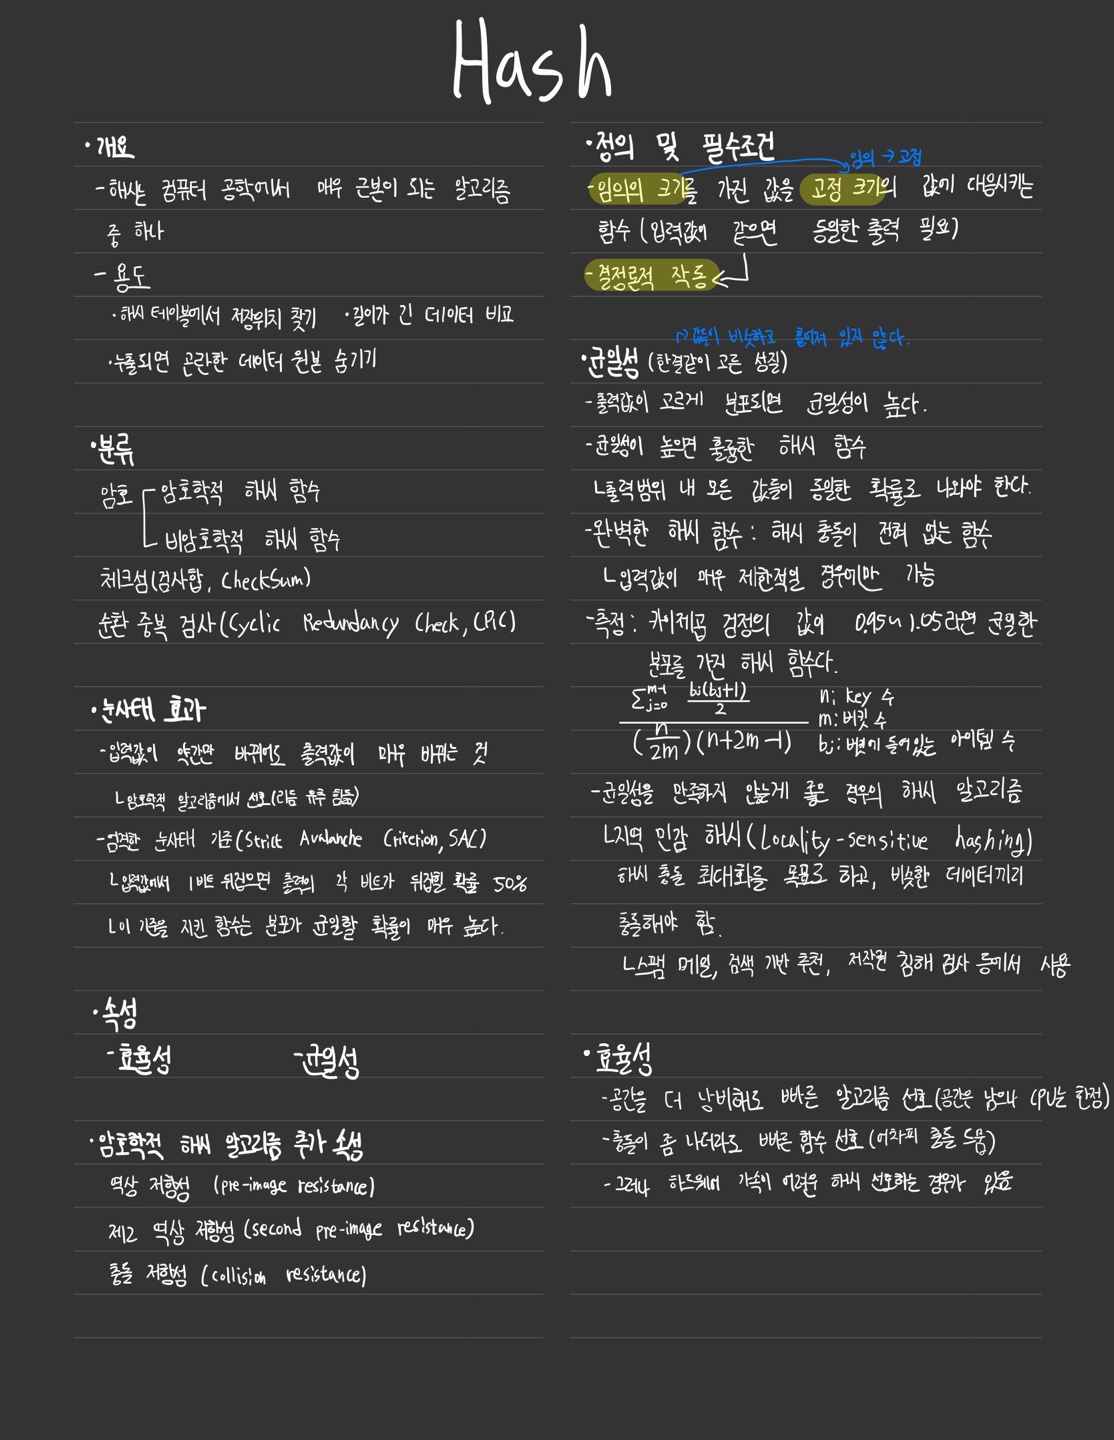 Hash
·개요
-해시는 컴퓨터 공학에서 매우 근본이 되는 알고리즘
중 하나
- 용도
·해시 테이블에서 저장위치 찾기 ·길이가 긴 데이터 비교
·누출되면 곤란한 데이터 원본 숨기기
·분류
암호 암호학적 해시 함수
비암호학적 해시 함수
체크섬(검사합, CheckSum)
순환 중복 검사(Cyclic Redundancy Check, CRC)
·눈사태 효과
-입력값이 약간만 바뀌어도 출력값이 매우 바뀌는 것
ㄴ암호학적 알고리즘에서 선호(리듬 유추 힘듦)
-엄격한 눈사태 기준(Strict Avalanche Criterion, SAC)
ㄴ입력값에서 1비트 뒤집으면 출력의 각 비트가 뒤집힐 확률 50%
ㄴ이 기준을 지킨 함수는 분포가 균일할 확률이 매우 높다.
·속성
-효율성 -균일성
·암호학적 해시 알고리즘 추가 속성
역상 저항성 (pre-image resistance)
제2 역상 저항성 (second pre-image resistance)
충돌 저항성 (collision resistance)
·정의 및 필수조건
임의 → 고정
-임의의 크기를 가진 값을 고정 크기의 값에 대응시키는
함수 (입력값이 같으면 동일한 출력 필요)
-결정론적 작동
값들이 비슷하고 흩어져 있지 않다.
·균일성 (한결같이 고른 성질)
-출력값이 고르게 분포되면 균일성이 높다.
-균일성이 높으면 훌륭한 해시 함수
ㄴ출력범위 내 모든 값들이 동일한 확률로 나와야 한다.
-완벽한 해시 함수 : 해시 충돌이 전혀 없는 함수
ㄴ입력값이 매우 제한적일 경우에만 가능
-측정 : 카이제곱 검정의 값이 0.95~1.05라면 균일한
분포를 가진 해시 함수다.
∑_{j=0}^{m-1} bj(bj+1)/2 n; key 수
m: 버킷 수
(n/2m)(n+2m-1) bj: 버켓에 들어있는 아이템 수
-균일성을 만족하지 않는게 좋은 경우의 해시 알고리즘
ㄴ지역 민감 해시(Locality-sensitive hashing)
해시 충돌 최대화를 목표로 하고, 비슷한 데이터끼리
충돌해야 함.
ㄴ스팸 메일, 검색 기반 추천, 저작권 침해 검사 등에서 사용
·효율성
-공간을 더 낭비해도 빠른 알고리즘 선호(공간은 남으나 CPU는 한정)
-충돌이 좀 나더라도 빠른 함수 선호 (어차피 충돌 드뭄)
-그러나 하드웨어 가속이 어려운 해시 선호하는 경우가 있음